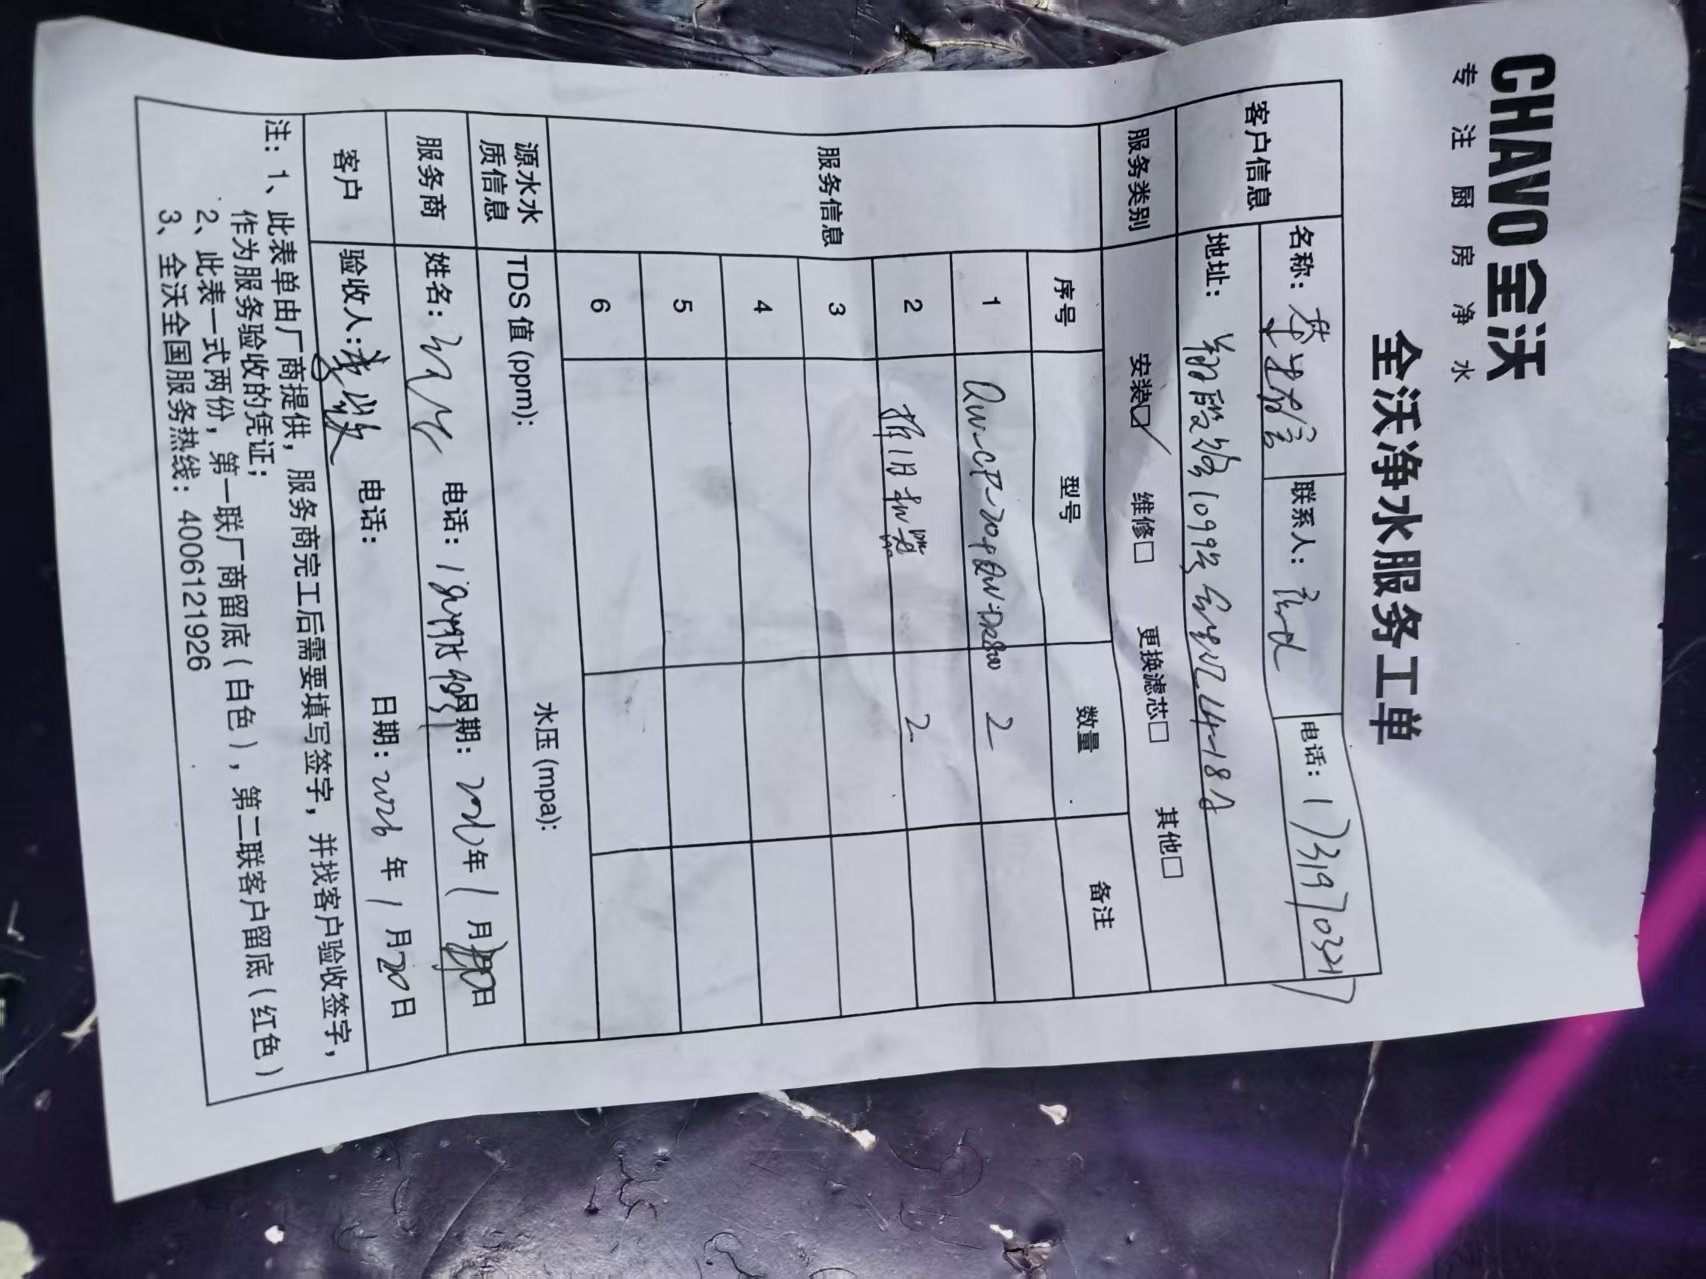 CHAVO 全沃
专注厨房净水
全沃净水服务工单
客户信息 名称: 联系人: 电话: 17319703217
地址: 翔殷路1099号 24-18A
服务类别 安装☑ 维修□ 更换滤芯□ 其他□
服务信息 序号 型号 数量 备注
1 QW-CF-20+QW-DR800 2
2 拆旧机器 2
3
4
5
6
源水水质信息 TDS 值 (ppm): 水压 (mpa):
服务商 姓名: 电话: 日期: 年 1 月 日
客户 验收人: 电话: 日期: 2026 年 1 月 20 日
注: 1、此表单由厂商提供, 服务商完工后需要填写签字, 并找客户验收签字,
作为服务验收的凭证;
2、此表一式两份, 第一联厂商留底 (白色), 第二联客户留底 (红色)
3、全沃全国服务热线: 4006121926